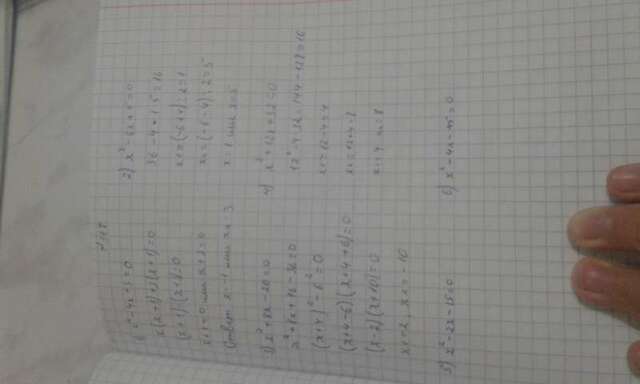 1) x² - 4x + 3 = 0
x(x+1)+3(x+1)=0
(x+1)·(x+3)=0
x+1=0 или x+3=0
Ответ x=-1 или x=-3
2) x² - 6x + 5 = 0
36 - 4 · 1 · 5 = 16
x₁=(-6+4):2=1
x₂=(-6-4):2=5
x=1 или x=5
3) x² + 8x - 20 = 0
x² + 8x + 16 - 36 = 0
(x+4)² - 6² = 0
(x+4-6)(x+4+6)=0
(x-2)(x+10)=0
x₁=2, x₂=-10
4) x² + 12x + 32 = 0
12² - 4·32 = 144 - 128 = 16
5) x² - 2x - 15 = 0
6) x² - 4x - 45 = 0